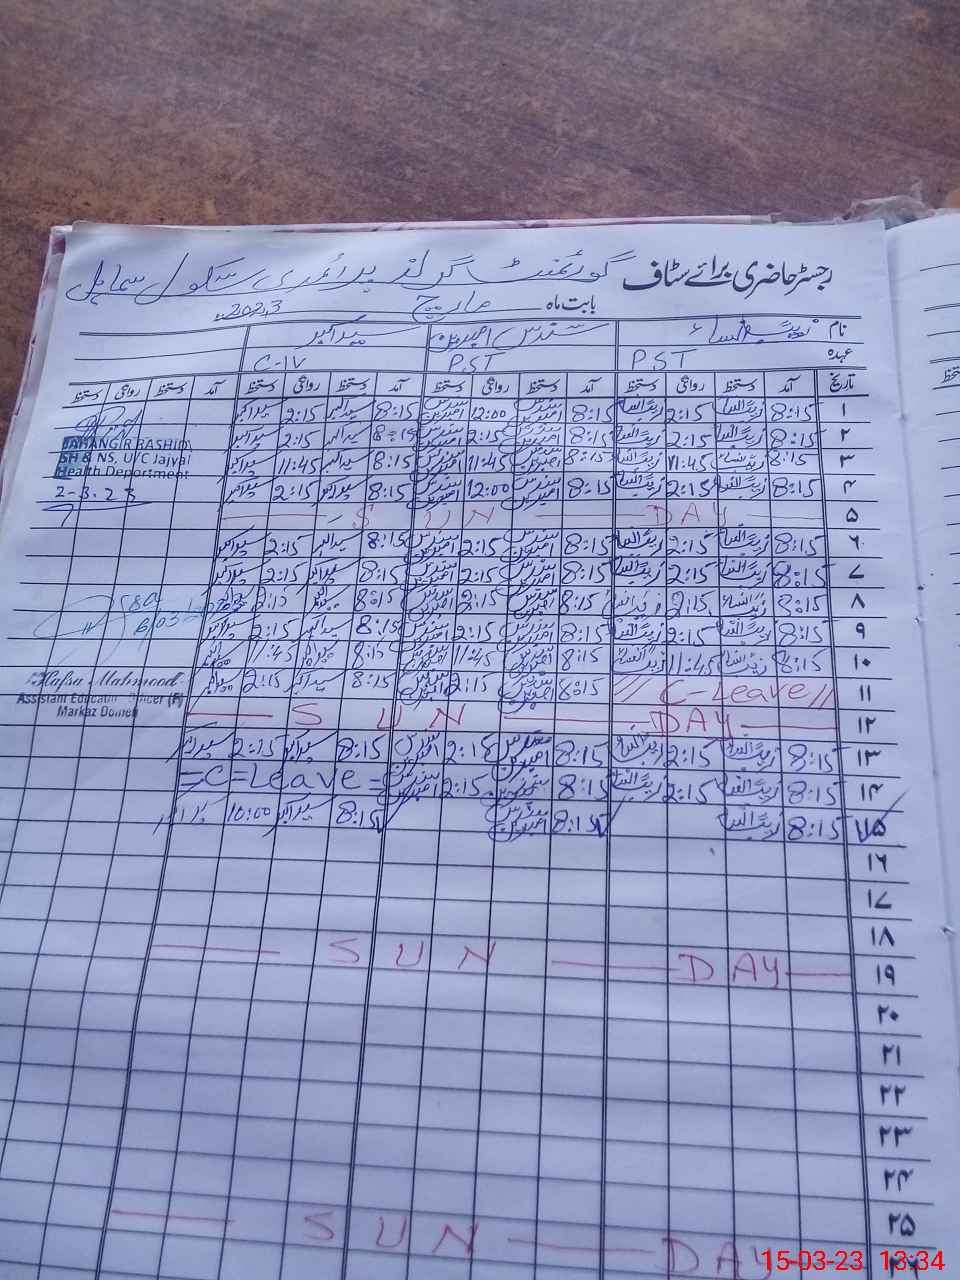 رجسٹر حاضری برائے سٹاف گورنمنٹ گرلز پرائمری سکول
بابت ماہ مارچ 2023ء
نام زیب النساء سندس امبرین سید اکبر
عہدہ PST PST C-IV
تاریخ آمد دستخط روانگی دستخط آمد دستخط روانگی دستخط آمد دستخط روانگی دستخط آمد دستخط روانگی دستخط
۱ 8:15 زیب النساء 2:15 زیب النساء 8:15 سندس امبرین 12:00 سندس امبرین 8:15 سید اکبر 2:15 سید اکبر
۲ 8:15 زیب النساء 2:15 زیب النساء 8:15 سندس امبرین 2:15 سندس امبرین 8:15 سید اکبر 2:15 سید اکبر
JAHANGIR RASHID
SH & NS, U/C Jajyal
Health Department
2-3-23
۳ 8:15 زیب النساء 11:45 زیب النساء 8:15 سندس امبرین 11:45 سندس امبرین 8:15 سید اکبر 11:45 سید اکبر
۴ 8:15 زیب النساء 2:15 زیب النساء 8:15 سندس امبرین 12:00 سندس امبرین 8:15 سید اکبر 2:15 سید اکبر
۵ SUN DAY
۶ 8:15 زیب النساء 2:15 زیب النساء 8:15 سندس امبرین 2:15 سندس امبرین 8:15 سید اکبر 2:15 سید اکبر
۷ 8:15 زیب النساء 2:15 زیب النساء 8:15 سندس امبرین 2:15 سندس امبرین 8:15 سید اکبر 2:15 سید اکبر
۸ 8:15 زیب النساء 2:15 زیب النساء 8:15 سندس امبرین 2:15 سندس امبرین 8:15 سید اکبر 2:15
۹ 8:15 زیب النساء 2:15 زیب النساء 8:15 سندس امبرین 2:15 سندس امبرین 8:15 سید اکبر 2:15 سید اکبر
۱۰ 8:15 زیب النساء 11:45 زیب النساء 8:15 سندس امبرین 11:45 سندس امبرین 8:15 سید اکبر 11:45 سید اکبر
۱۱ C-Leave 8:15 سندس امبرین 2:15 سندس امبرین 8:15 سید اکبر 2:15 سید اکبر
Hafsa Mahmood
Assistant Education Officer (F)
Markaz Domeli
۱۲ SUN DAY
۱۳ 8:15 زیب النساء 2:15 زیب النساء 8:15 سندس امبرین 2:15 سندس امبرین 8:15 سید اکبر 2:15 سید اکبر
۱۴ 8:15 زیب النساء 2:15 زیب النساء 8:15 سندس امبرین 2:15 سندس امبرین C=Leave
۱۵ 8:15 زیب النساء 8:15 سندس امبرین 8:15 سید اکبر 10:00 سید اکبر
۱۶
۱۷
۱۸
۱۹ SUN DAY
۲۰
۲۱
۲۲
۲۳
۲۴
۲۵
SUN DAY
15-03-23 13:34